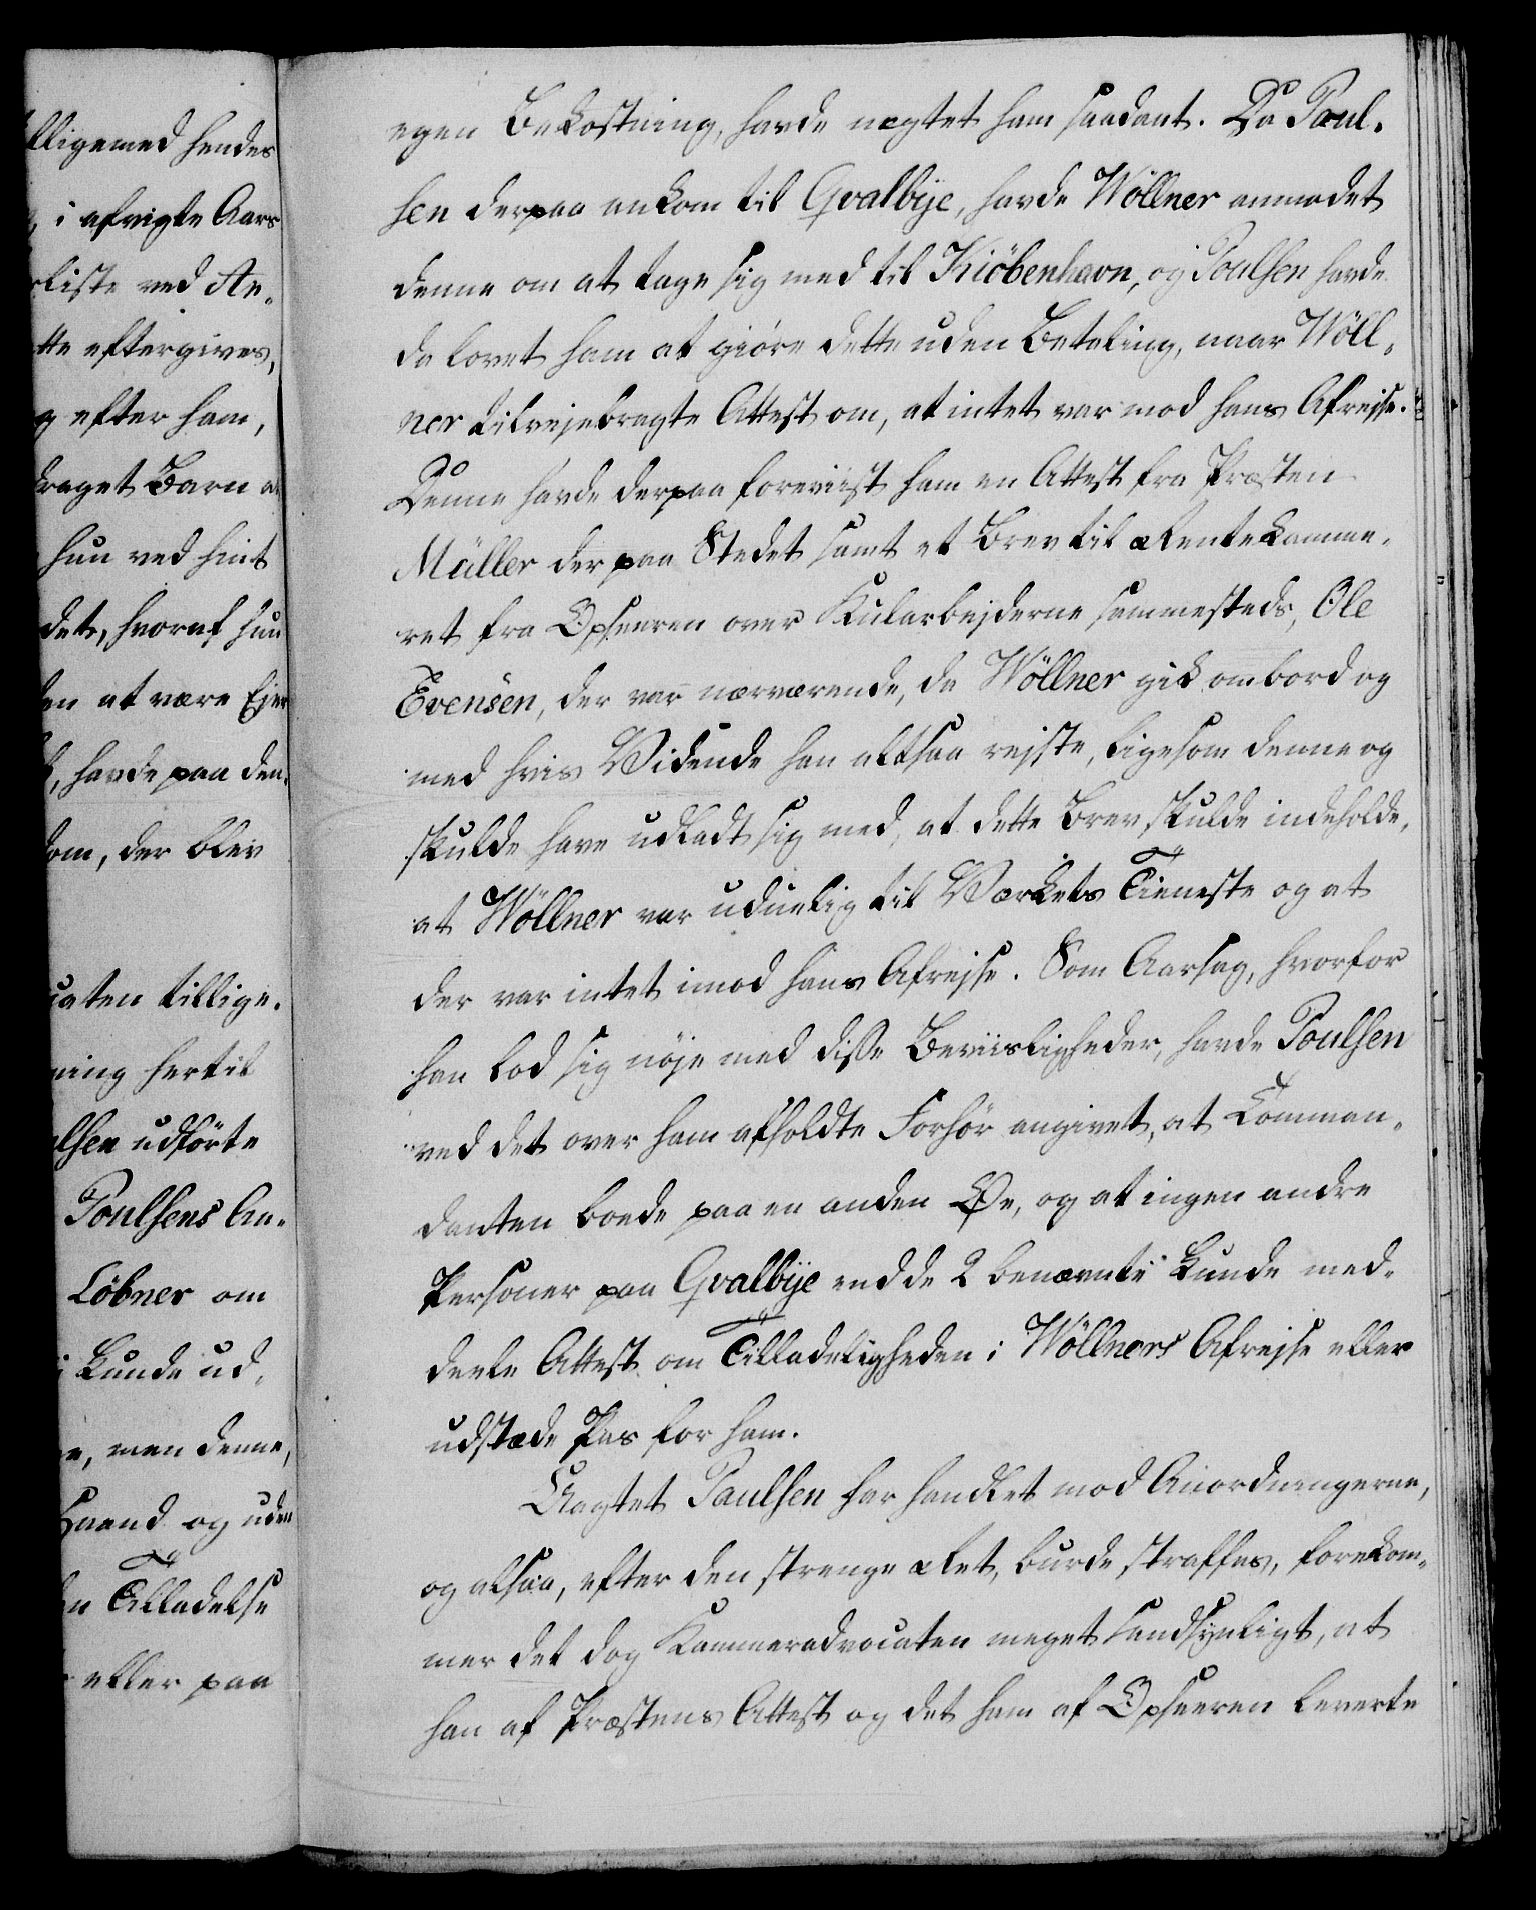 lligemed hendes
i afvigte Aars
rliste ved An-
tte eftergives,
g efter ham,
draget Barn a
hun ved hint
det, hvoraf hun
en at være Ejer
, havde paa den-
om, der blev
caten tillige.
ning hertil
lsen udförte
Poulsens An-
Löbner om
i kunde ud-
e, men denne,
Haand og uden
en Tilladelse
eller paa
egen Bekostning, havde nægtet ham saadant. Da Poul-
sen derpaa ankom til Qvalbije, havde Wöllner anmodet
denne om at tage sig med til Kiöbenhavn, og Poulsen havde
da lovet ham at giöre dette uden Betaling, naar Wöll-
ner tilvejebragte Attest om, at intet var mod hans Afrejse.
Denne havde derpaa foreviist ham en Attest fra Præsten
Müller der paa Stedet samt et Brev til Rentekamme-
ret fra Opseeren over Kularbejderne sammesteds, Ole
Evensen, der var nærværende, da Wöllner gik ombord og
med hvis Vidende han altsaa rejste, ligesom denne og
skulde have udladt sig med, at dette Brev skulde indeholde,
at Wöllner var uduelig til Værkets Tieneste og at
der var intet imod hans Afrejse. Som Aarsag, hvorfor
han lod sig nöje med disse Beviisligheder, havde Poulsen
ved det over ham afholdte Forhör angivet, at Comman-
danten boede paa en anden Öe, og at ingen andre
Personer paa Qvalbije end de 2 benævnte kunde med-
deele Attest om Tilladeligheden i Wöllners Afrejse eller
udstæde Pas for ham.
Uagtet Paulsen har handlet mod Anordningerne,
og altsaa, efter den strenge Ret, burde straffes, forekom-
mer det dog Kammeradvocaten meget sandsynligt, at
han af Præstens Attest og det ham af Opseeren leverte